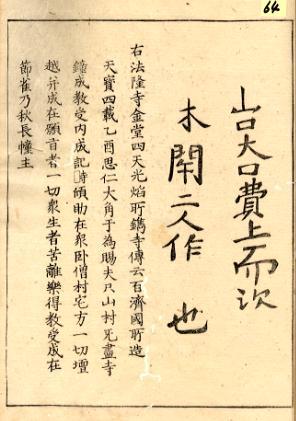 64
山口大口費上而次
木閇二人作也
右法隆寺金堂四天光焰所鐫寺傳云百濟國所造
天寶四載乙酉思仁大角于為賜夫只山村旡盡寺
鐘成教受內成記時願助在衆卧僧村宅方一切壇
越并成在願旨者一切衆生者苦離樂得教受成在
節雀乃秋長幢主